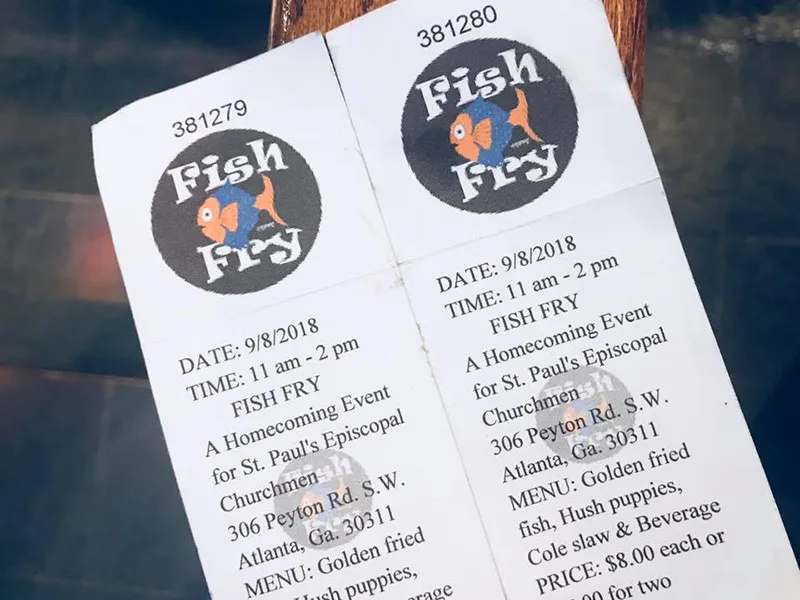 381279
Fish
Fry
DATE: 9/8/2018
TIME: 11 am - 2 pm
FISH FRY
A Homecoming Event
for St. Paul's Episcopal
Churchmen
306 Peyton Rd. S.W.
Atlanta, Ga. 30311
MENU: Golden fried
Hush puppies,
381280
Fish
Fry
DATE: 9/8/2018
TIME: 11 am - 2 pm
FISH FRY
A Homecoming Event
for St. Paul's Episcopal
Churchmen
306 Peyton Rd. S.W.
Atlanta, Ga. 30311
MENU: Golden fried
fish, Hush puppies,
Cole slaw & Beverage
PRICE: $8.00 each or
.00 for two